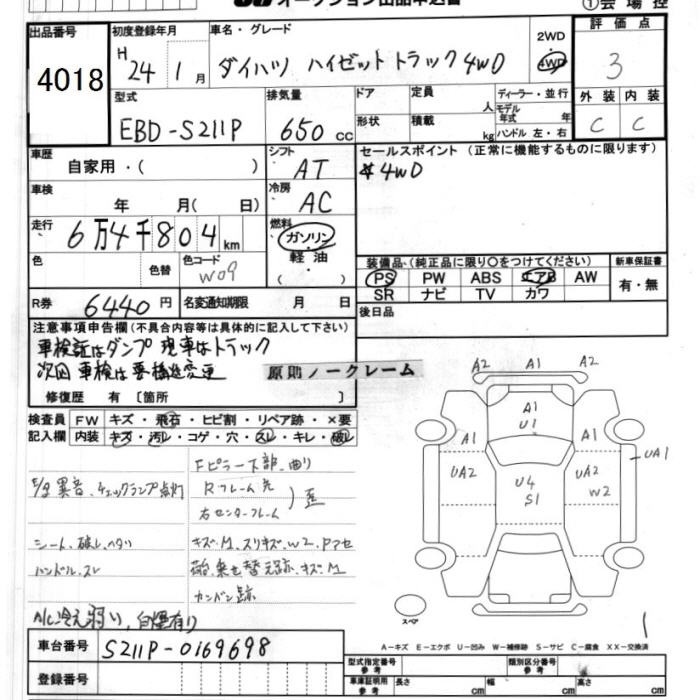 オークション出品申込書
①会場控
出品番号
4018
初度登録年月
H 24 1月
車名・グレード
ダイハツ ハイゼットトラック 4WD
2WD
4WD
評価点
3
型式
EBD-S211P
排気量
650 cc
ドア
形状
定員
人
積載
kg
ディーラー・並行
モデル年式 年
ハンドル 左・右
外装
内装
C
C
車歴
自家用・( )
シフト
AT
セールスポイント (正常に機能するものに限ります)
4WD
車検
年 月 ( 日)
冷房
AC
走行
6万4千804km
燃料
ガソリン
軽油
色
色替
色コード
W09
装備品・(純正品に限り○をつけてください)
新車保証書
PS PW ABS エアB AW
SR ナビ TV カワ
有・無
R券
6440円
名変通知期限 月 日
後日品
注意事項申告欄 (不具合内容等は具体的に記入して下さい)
車検証はダンプ 現車はトラック
次回 車検は要構造変更
原則ノークレーム
修復歴 有 〔箇所 〕
検査員
記入欄
FW キズ・飛石・ヒビ割・リペア跡・×要
内装 キズ・汚レ・コゲ・穴・スレ・キレ・破レ
Fピラー下部、曲り
E/g異音、チェックランプ点灯
Rフレーム先
右センターフレーム
歪
シート、破レ、ヘタリ
キズ・M、スリキズ、W2、Pアセ
ハンドル、スレ
載せ替え跡、キズ・M
カンバン跡
A/C冷え弱い、自爆有り
A2
A1
A2
A1
U1
A1
A1
UA2
U4
S1
UA2
W2
UA1
スペア
1
A-キズ E-エクボ U-凹み W-補修跡 S-サビ C-腐食 XX-交換済
車台番号
S211P-0169698
登録番号
型式指定番号
類別区分番号
車庫証明用参考
長さ cm
幅 cm
高さ cm